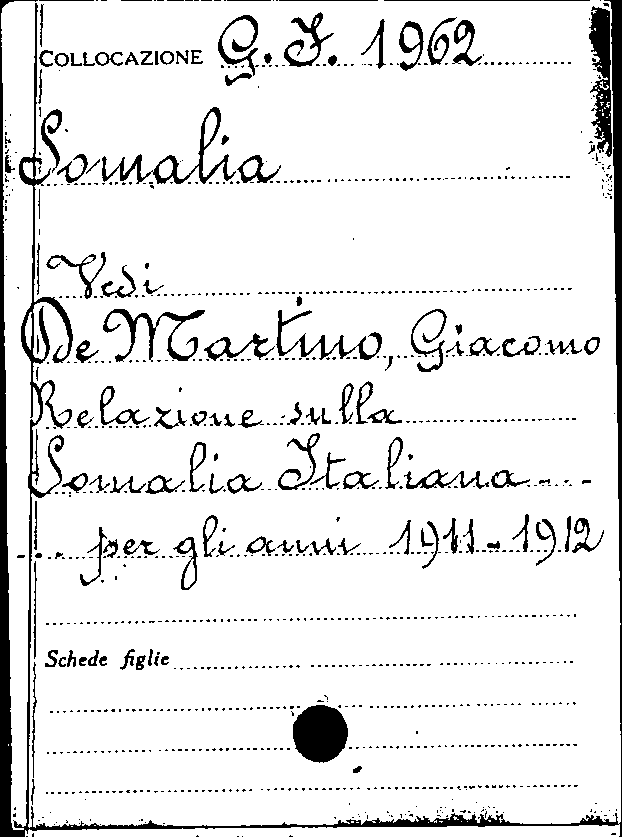 COLLOCAZIONE G. I. 1962
Somalia
Vedi
De Martino, Giacomo
Relazione sulla
Somalia Italiana ...
... per gli anni 1911-1912
Schede figlie